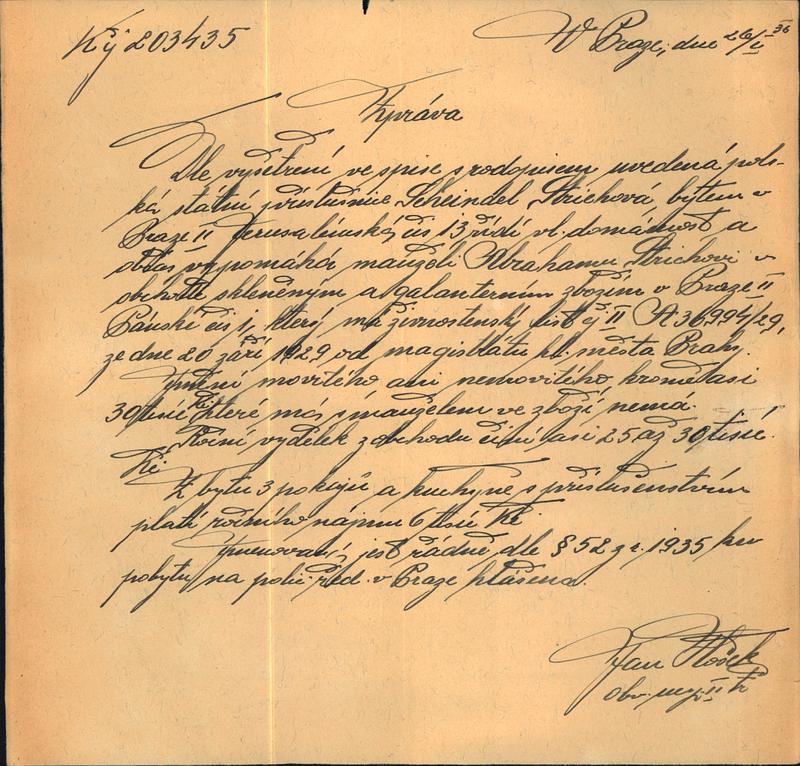 Ký 203435
V Praze, dne 26/I 36
Zpráva
Dle vyšetření ve spise s rodopisem uvedená pols-
ká státní příslušnice Scheindel Strichová, bytem v
Praze II Jerusalémská čís 13 řídí vl. domácnost a
občas vypomáhá manželi Abrahamu Strichovi v
obchodě skleněným a galanterním zbožím v Praze II
Pánská čís 1, který má živnostenský list čj II A 36994/29,
ze dne 20 září 1929 od magistrátu hl. města Prahy.
Jmění movitého ani nemovitého, kromě asi
30 tisíc Kč, které má s manželem ve zboží, nemá.
Roční výdělek z obchodu činí asi 25 až 30 tisíc
Kč.
Z bytu 3 pokojů a kuchyně s příslušenstvím
platí ročního nájmu 6 tisíc Kč.
Jmenovaná jest řádně dle § 52 z r. 1935 ku
pobytu na polic. řed. v Praze hlášena.
Jan
obv. insp. II tř